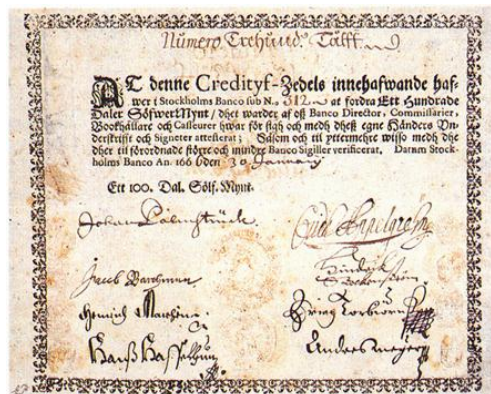 Numero Trehund. Tålff
AT denne Credityf-Zedels innehafwande haf-
wer i Stockholms Banco sub N.o 312 at fordra Ett Hundrade
Daler SölfwerMynt / dhet warder af oß Banco Director, Commissarier,
Bookhållare och Casseurer hwar för sigh och medh dheß egne Händers Un-
derskrift och Signeter attesterat; Såsom och til yttermehre wisso medh dhe
dher til förordnade större och mindre Banco Sigiller verificerat. Datum Stock-
holms Banco An. 166 6 den 30 January
Ett 100. Dal. Sölf. Mynt.
Johan Palmstruck
Jacob
Hinrich
Hanß Anders